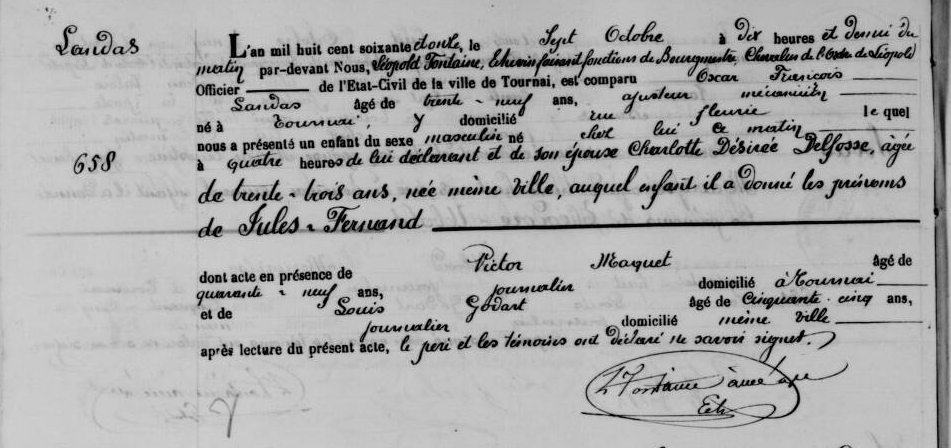 Landas
658
L'an mil huit cent soixante douze, le Sept Octobre à dix heures et demie du
matin par-devant Nous, Léopold Fontaine, Echevin faisant fonctions de Bourgmestre, Chevalier de l'Ordre de Léopold
Officier de l'Etat-Civil de la ville de Tournai, est comparu Oscar François
Landas âgé de trente-neuf ans, ajusteur mécanicien
né à Tournai, y domicilié rue fleurie lequel
nous a présenté un enfant du sexe masculin né chez lui ce matin
à quatre heures de lui déclarant et de son épouse Charlotte Désirée Delfosse, âgée
de trente-trois ans, née même ville, auquel enfant il a donné les prénoms
de Jules-Fernand
dont acte en présence de Victor Maquet âgé de
quarante-neuf ans, journalier domicilié à Tournai
et de Louis Godart âgé de Cinquante-cinq ans,
journalier domicilié même ville
après lecture du présent acte, le père et les témoins ont déclaré ne savoir signer.
L Fontaine
Ech